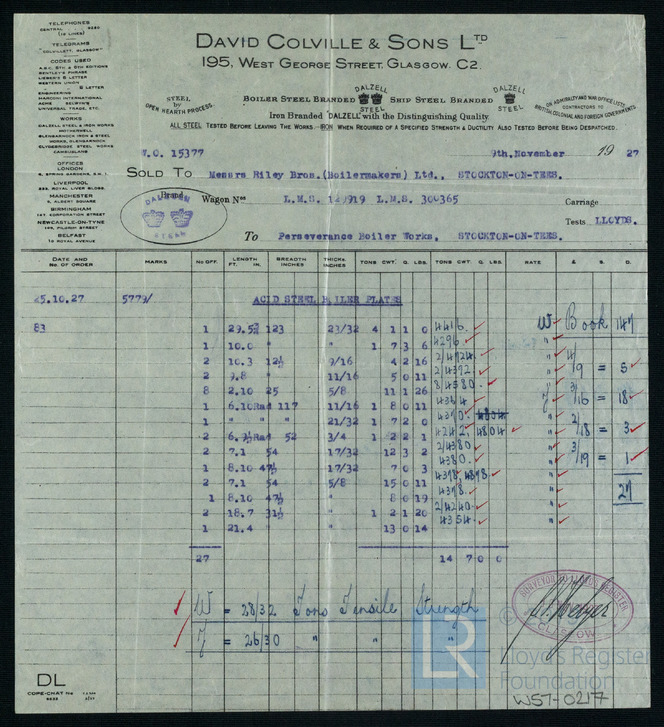 TELEPHONES
CENTRAL
(10 LINES)
TELEGRAMS
"COLVILLETT, GLASGOW"
CODES USED
A.B.C. 5TH & 6TH EDITIONS
BENTLEY'S PHRASE
LIEBER'S 5 LETTER
WESTERN UNION
5 LETTER
ENGINEERING
MARCONI INTERNATIONAL
ACME SELWYN'S
UNIVERSAL TRADE, ETC.
WORKS
DALZELL STEEL & IRON WORKS
MOTHERWELL
GLENGARNOCK IRON & STEEL
WORKS, GLENGARNOCK
CLYDEBRIDGE STEEL WORKS
CAMBUSLANG
OFFICES
LONDON
LIVERPOOL
MANCHESTER
BIRMINGHAM
NEWCASTLE-ON-TYNE
BELFAST
DAVID COLVILLE & SONS LTD
195, WEST GEORGE STREET, GLASGOW. C2.
STEEL
by
OPEN HEARTH PROCESS.
BOILER STEEL BRANDED
DALZELL
STEEL
SHIP STEEL BRANDED
DALZELL
STEEL
ON ADMIRALTY AND WAR OFFICE LISTS.
CONTRACTORS TO
BRITISH, COLONIAL AND FOREIGN GOVERNMENTS.
Iron Branded "DALZELL" with the Distinguishing Quality.
ALL STEEL TESTED BEFORE LEAVING THE WORKS. IRON WHEN REQUIRED OF A SPECIFIED STRENGTH & DUCTILITY ALSO TESTED BEFORE BEING DESPATCHED.
W.O. 15377 9th.November 19 27
SOLD TO Messrs Riley Bros.(Boilermakers) Ltd., STOCKTON-ON-TEES.
Brand
DALZELL
STEEL
Wagon Nos L.M.S. L.M.S. 300365 Carriage
Tests LLOYDS.
To Perseverance Boiler Works, STOCKTON-ON-TEES.
DATE AND No. OF ORDER MARKS No OFF. LENGTH FT. IN. BREADTH INCHES THICK. INCHES TONS CWT. Q. LBS. TONS CWT. Q. LBS. RATE £ S. D.
25.10.27 5779/ ACID STEEL BOILER PLATES
W Book 147
83 1 29.5¾ 123 23/32 4 1 1 0 4416
1 10.0 " " 1 7 3 6 4296 "
2 10.3 12½ 9/16 4 2 16 2/4724 "
2 9.8 " 11/16 5 0 11 2/4372 " 4/9 = 5
8 2.10 25 5/8 11 1 26 8/4580 "
1 6.10Rad 117 11/16 1 8 0 11 4364 7 3/16 = 18
1 " " " 21/32 1 7 2 0 4390 "
2 52 3/4 1 2 2 1 4242, 4804 " 2/18 = 3
2 7.1 54 17/32 12 3 2 2/4380 "
1 8.10 47½ 17/32 7 0 3 4380 " 3/19 = 1
2 7.1 54 5/8 15 0 11 4398, 4898 "
1 8.10 47½ 8 0 19 4398 " 27
2 18.7 31½ 1 2 1 20 2/4240 "
1 21.4 " 13 0 14 4354 "
27 14 7 0 0
W = 28/32 Tons Tensile Strength
7 = 26/30 " " "
SURVEYOR
REGISTER
GLASGOW
LR
Lloyd's Register
Foundation
W57-0217
DL
COPE-CHAT No